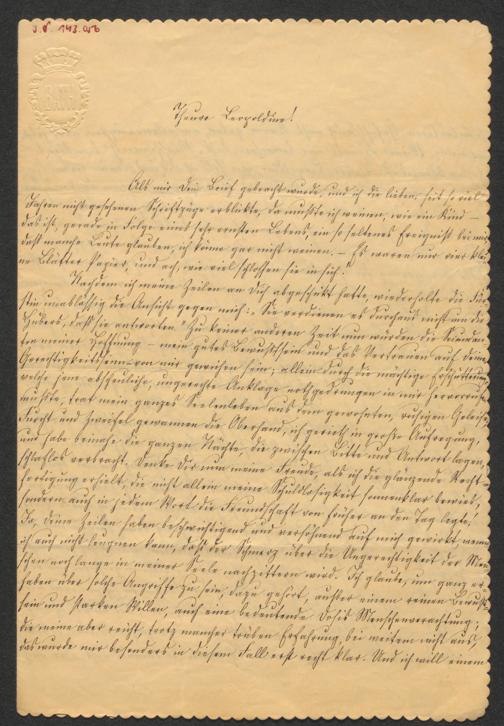 J. N. 143.056
BATH
Theure Leopoldine!
Als mir Dein Brief gebracht wurde, und ich die lieben, seit so viel
Jahren nicht gesehenen Schriftzüge erblickte, da mußte ich weinen, wie ein Kind —
das ist, gerade in Folge eines sehr ernsten Lebens, ein so seltenes Ereigniß bei mir,
daß manche Leute glauben, ich könne gar nicht weinen. — Es waren nur vier klei=
ne Blätter Papier, und ach, wie viel schlossen sie in sich!
Nachdem ich meine Zeilen an Dich abgeschickt hatte, wiederholte die Für=
stin unablässig die Ansicht gegen mich: „Sie verdienen es durchaus nicht um die
daß sie antworten!“ Zu keiner anderen Zeit nun würden die
ten meiner Hoffnung — mein gutes Bewußtsein und das Vertrauen auf Deine
Gerechtigkeitsliebe von mir gewichen sein; allein durch die mächtige Erschütterung
welche jene abscheuliche, ungerechte Anklage nothgedrungen in mir hervorrufen
mußte, trat mein ganzes Seelenleben aus dem gewohnten, ruhigen Geleise,
Furcht und Zweifel gewannen die Oberhand, ich gerieth in große Aufregung,
und habe beinahe die ganzen Nächte, die zwischen Bitte und Antwort lagen,
schlaflos verbracht. Denke Dir nun meine Freude, als ich die glänzende Recht=
fertigung erhielt, die nicht allein meine Schuldlosigkeit sonnenklar bewies,
sondern auch in jedem Wort die Freundschaft von früher an den Tag legte!
Ja, Deine Zeilen haben beschwichtigend und versöhnend auf mich gewirkt, wenn
ich auch nicht leugnen kann, daß der Schmerz über die Ungerechtigkeit der Men
schen noch lange in meiner Seele nachzittern wird. Ich glaube, um ganz er=
haben über solche Angriffe zu sein, dazu gehört, außer einem reinen Bewußt
sein und starken Willen, auch eine bedeutende Dosis Menschenverachtung;
die meine aber reicht, trotz mancher trüben Erfahrung, bei weitem nicht aus,
das wurde mir besonders in diesem Fall erst recht klar. Und ich will einem